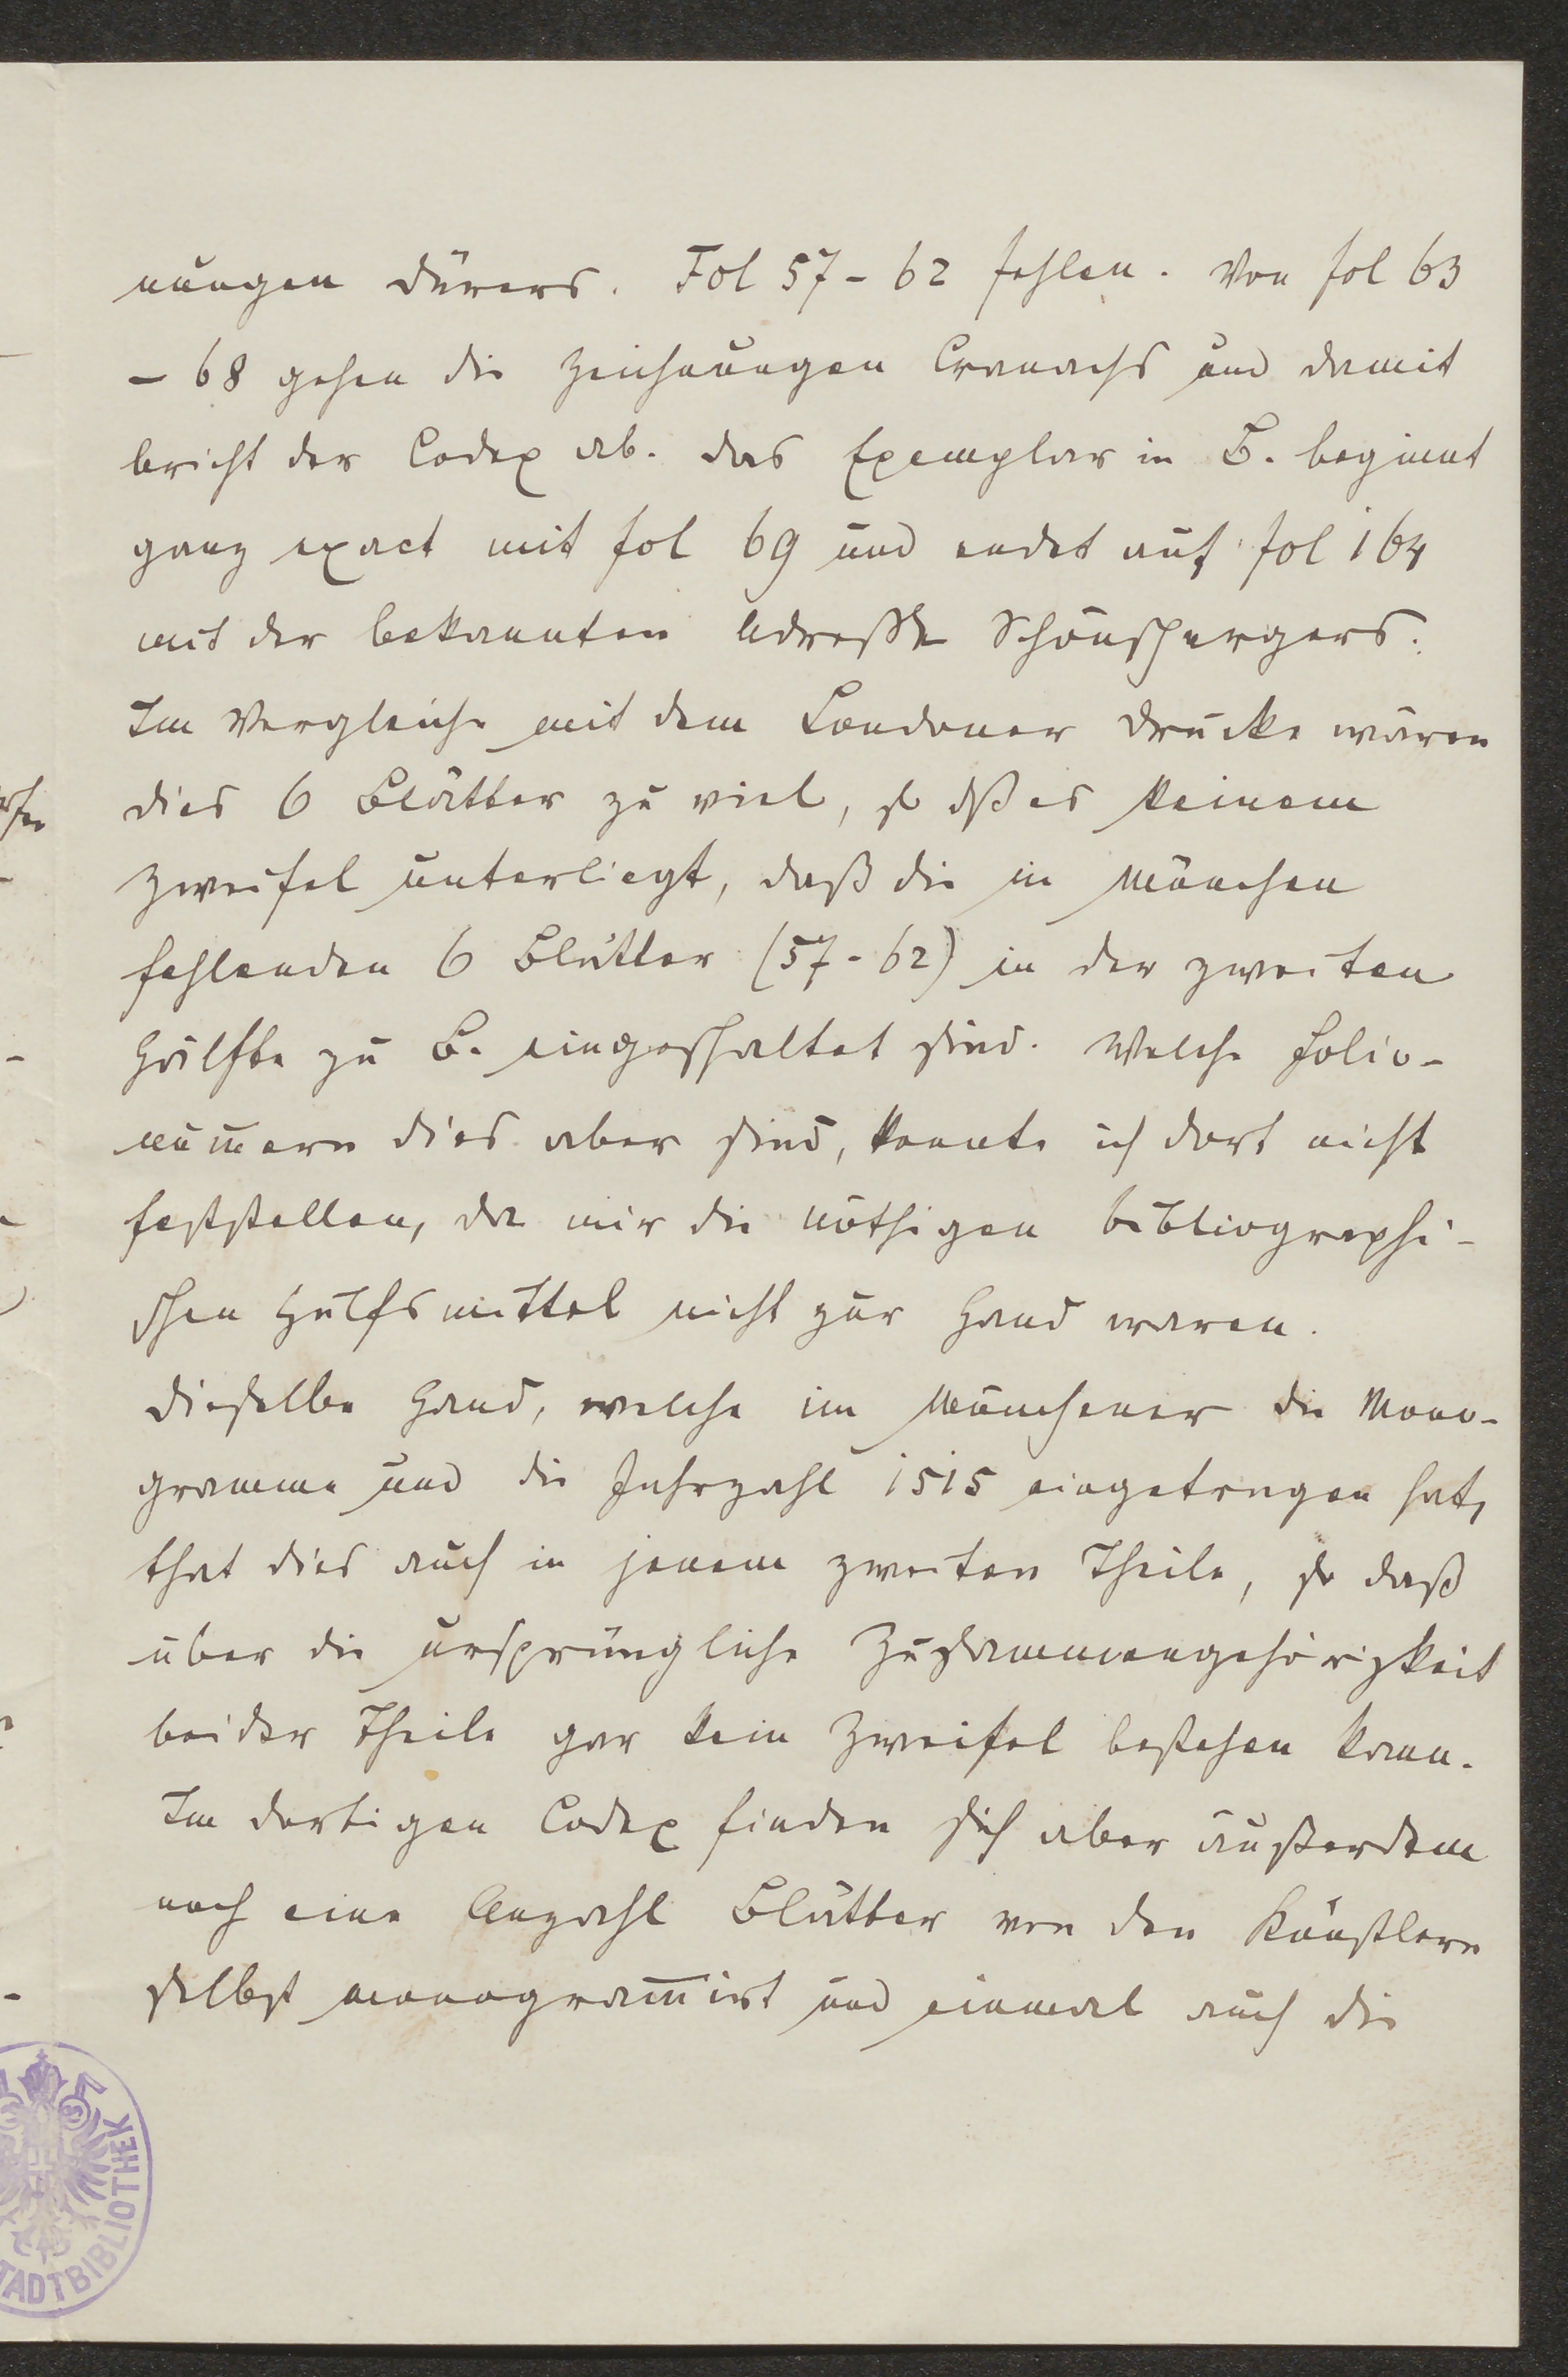 nungen Dürers. Fol 57-62 fehlen. Von fol 63
- 68 gehen die Zeichnungen Cranachs und damit
bricht der Codex ab. Das Exemplar in B. beginnt
ganz exact mit fol 69 und endet auf fol 164
mit der bekannten Adresse Schönspergers.
Im Vergleiche mit dem Londoner Drucke wären
dies 6 Blätter zu viel, so dß es keinem
Zweifel unterliegt, daß die in München
fehlenden 6 Blätter (57-62) in der zweiten
Hälfte zu B. eingeschaltet sind. Welche Folio-
num̅ern dies aber sind, konnte ich dort nicht
feststellen, da mir die nöthigen bibliographi-
schen Hülfsmittel nicht zur Hand waren.
Dieselbe Hand, welche im Münchener die Mono-
gramme und die Jahrzahl 1515 eingetragen hat,
that dies auch in jenem zweiten Theile, so daß
über die ursprüngliche Zusammengehörigkeit
beider Theile gar kein Zweifel bestehen kann.
Im dortigen Codex finden sich aber außerdem
noch eine Anzahl Blätter von den Künstlern
selbst monogram̅irt und einmal auch die
TADTBIBLIOTHEK